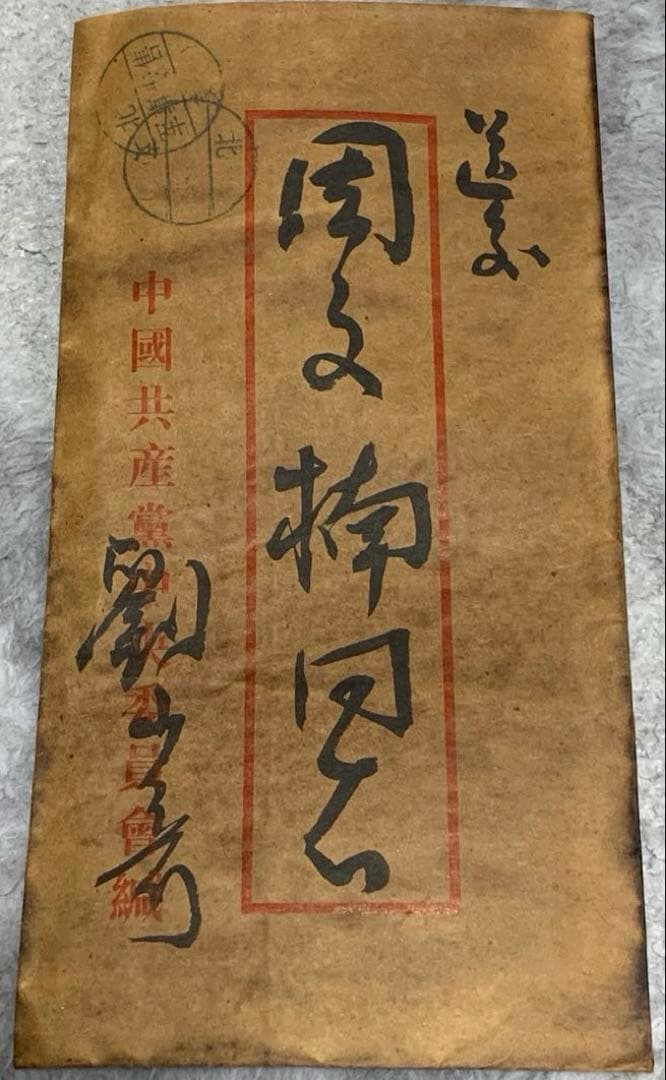 送交
周文楠同志
劉少奇
中國共產黨中央委員會緘
北